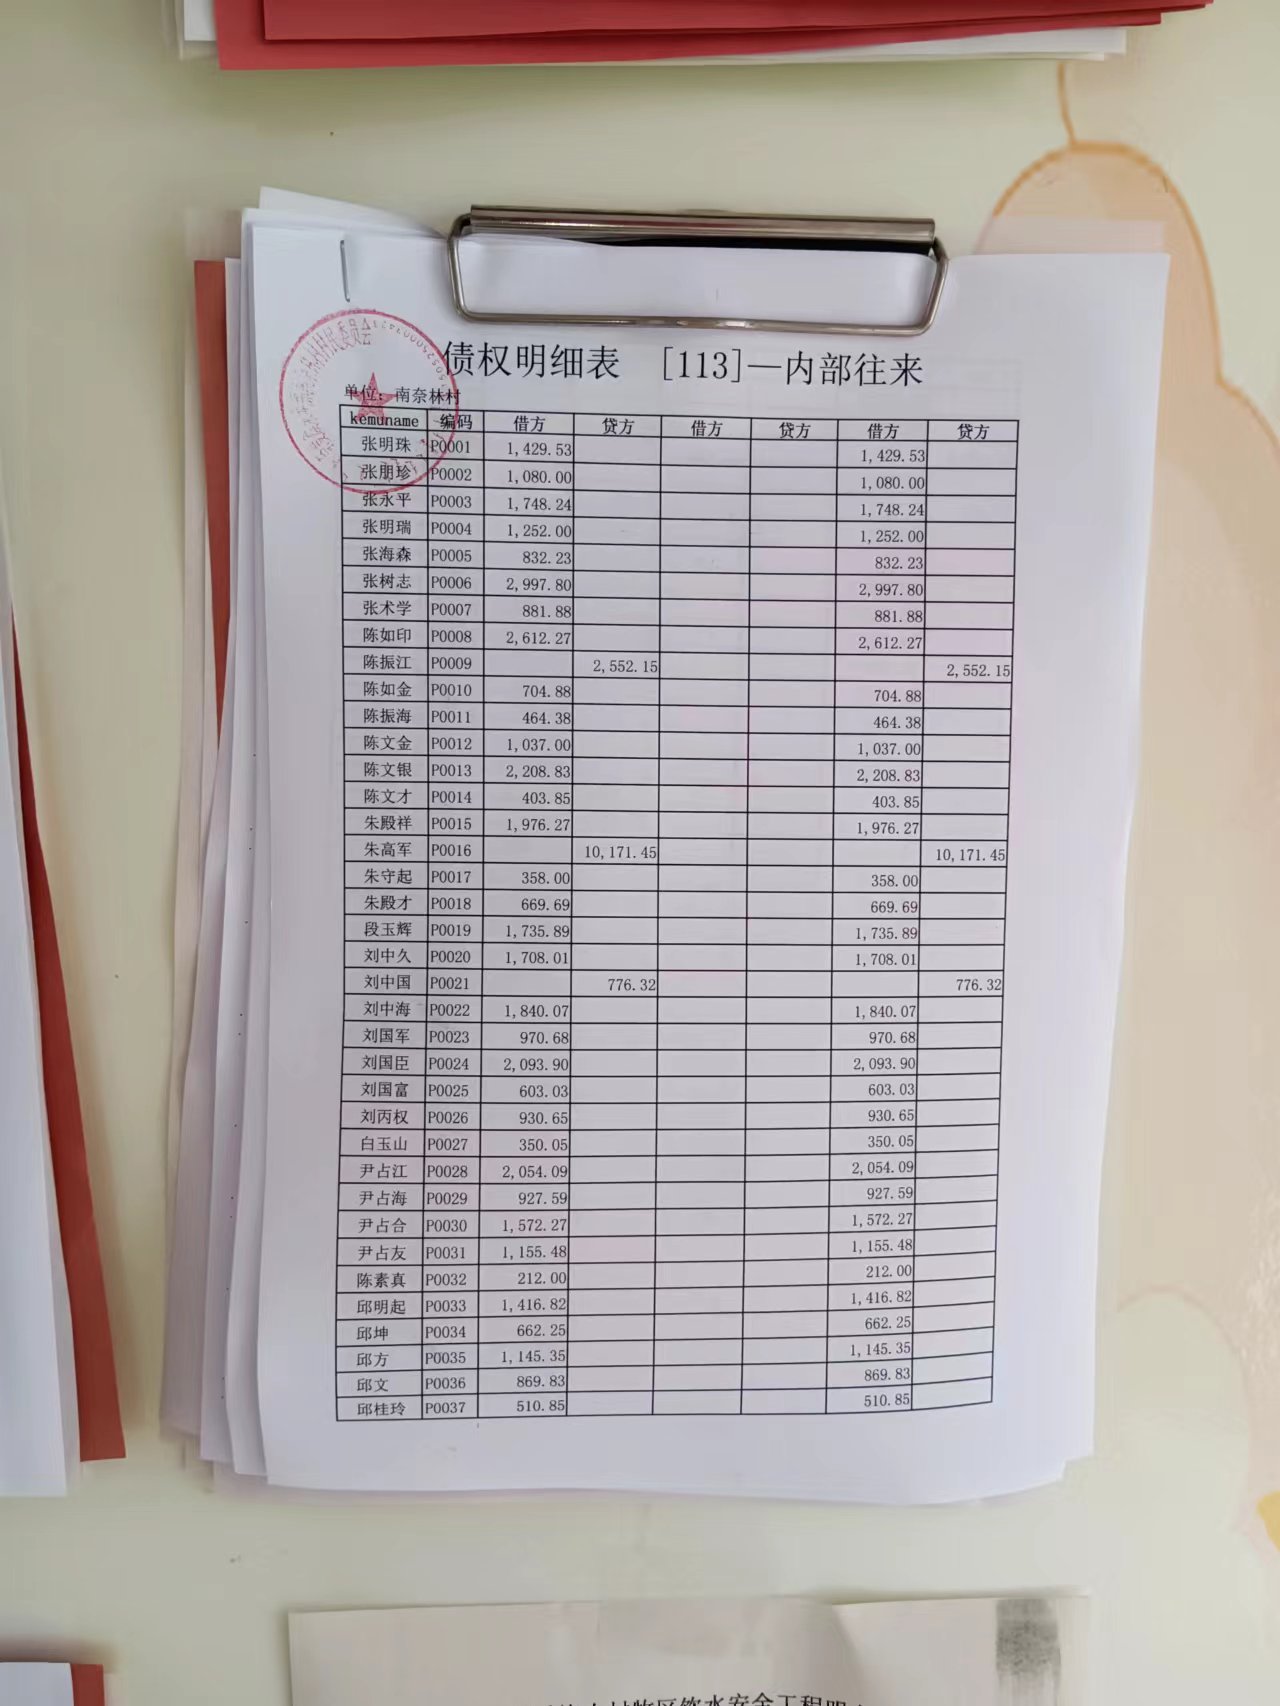 债权明细表 [113]—内部往来
单位：南奈林村
kemuname 编码 借方 贷方 借方 贷方 借方 贷方
张明珠 P0001 1,429.53 1,429.53
张朋珍 P0002 1,080.00 1,080.00
张永平 P0003 1,748.24 1,748.24
张明瑞 P0004 1,252.00 1,252.00
张海森 P0005 832.23 832.23
张树志 P0006 2,997.80 2,997.80
张术学 P0007 881.88 881.88
陈如印 P0008 2,612.27 2,612.27
陈振江 P0009 2,552.15 2,552.15
陈如金 P0010 704.88 704.88
陈振海 P0011 464.38 464.38
陈文金 P0012 1,037.00 1,037.00
陈文银 P0013 2,208.83 2,208.83
陈文才 P0014 403.85 403.85
朱殿祥 P0015 1,976.27 1,976.27
朱高军 P0016 10,171.45 10,171.45
朱守起 P0017 358.00 358.00
朱殿才 P0018 669.69 669.69
段玉辉 P0019 1,735.89 1,735.89
刘中久 P0020 1,708.01 1,708.01
刘中国 P0021 776.32 776.32
刘中海 P0022 1,840.07 1,840.07
刘国军 P0023 970.68 970.68
刘国臣 P0024 2,093.90 2,093.90
刘国富 P0025 603.03 603.03
刘丙权 P0026 930.65 930.65
白玉山 P0027 350.05 350.05
尹占江 P0028 2,054.09 2,054.09
尹占海 P0029 927.59 927.59
尹占合 P0030 1,572.27 1,572.27
尹占友 P0031 1,155.48 1,155.48
陈素真 P0032 212.00 212.00
邱明起 P0033 1,416.82 1,416.82
邱坤 P0034 662.25 662.25
邱方 P0035 1,145.35 1,145.35
邱文 P0036 869.83 869.83
邱桂玲 P0037 510.85 510.85
饮水安全工程